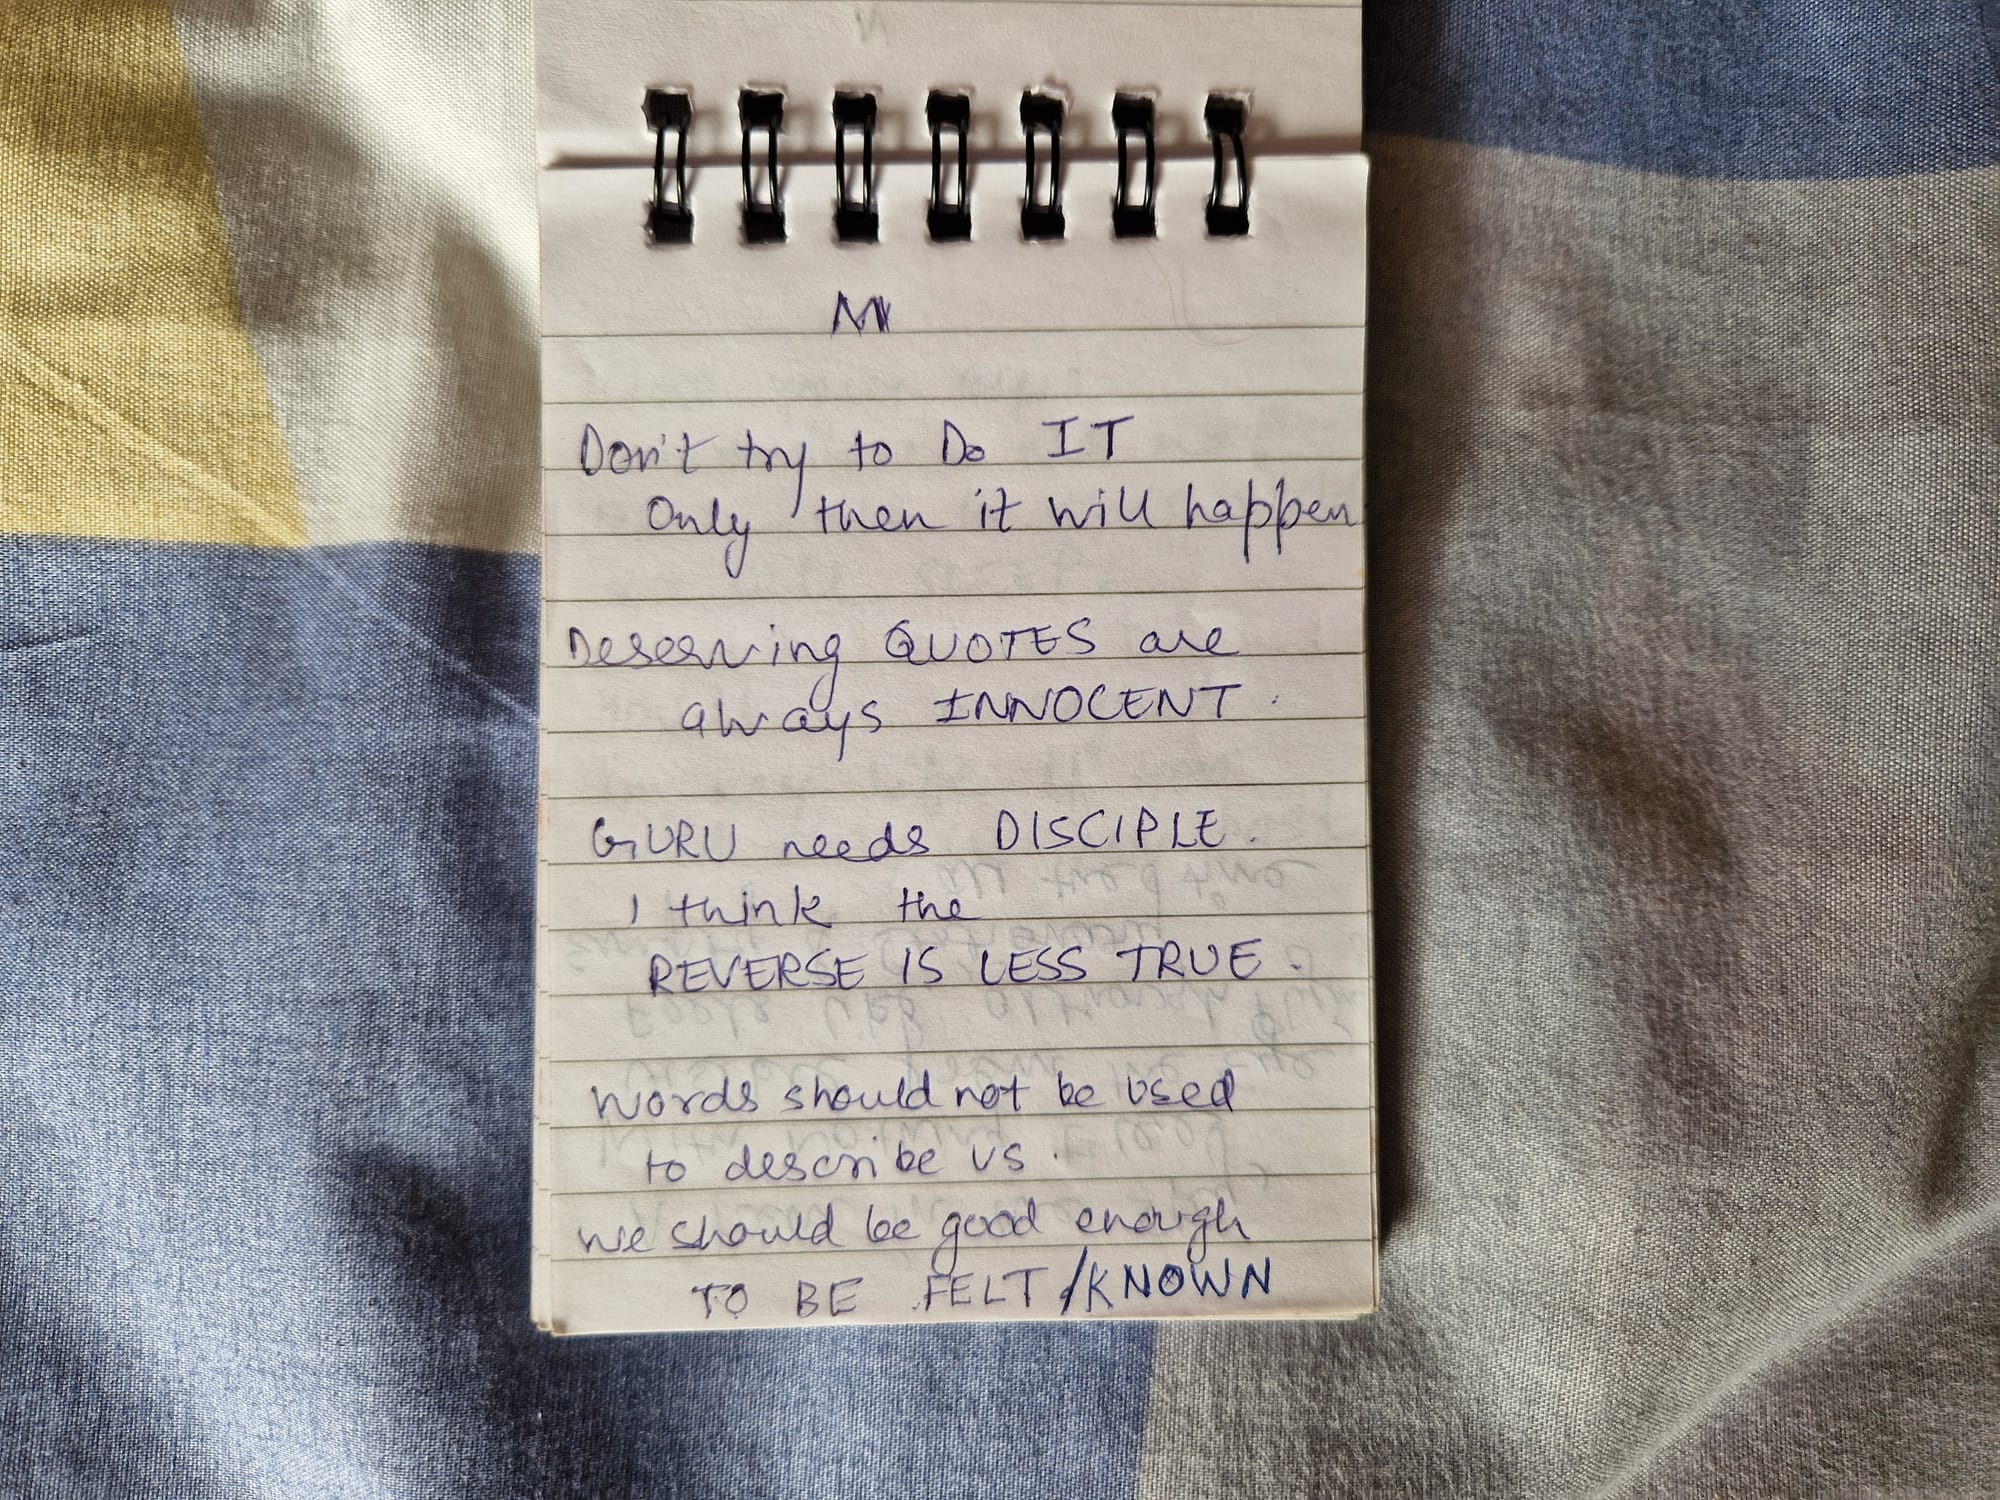 Don't try to Do IT
Only then it will happen
Deserving QUOTES are
always INNOCENT.
GURU needs DISCIPLE.
I think the
REVERSE IS LESS TRUE.
Words should not be used
to describe us.
We should be good enough
TO BE FELT/KNOWN